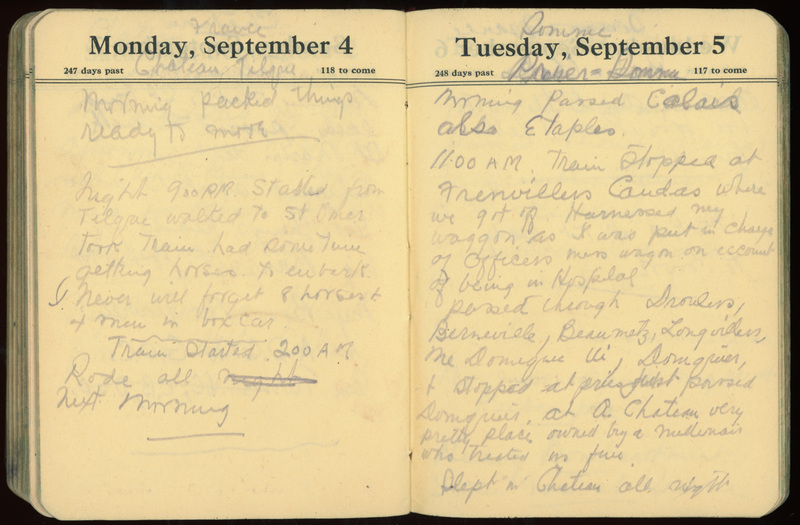 France
Monday, September 4
247 days past 118 to come
Chateau Tilque
Morning packed things
ready to move
Night 9:00 P.M. Started from
Tilque walked to St Omer
Took Train had some time
getting horses to embark
I Never will forget 8 horses &
4 men in box car.
Train Started 2.00 A.M
Rode all night
Next Morning
Somme
Tuesday, September 5
248 days past 117 to come
Somme
Morning Passed Calais
also Etaples.
11:00 A.M. Train Stopped at
Frenvillers Candas where
we got off. Harnessed my
waggon as I was put in charge
of Officers mess wagon on account
of being in Hospital
passed through
Berneville, Beaumetz, Longvillers,
Domquier,
& stopped at just passed
Domquier, at A Chateau very
pretty place owned by a millionair
who treated us fine
Slept in Chateau all night